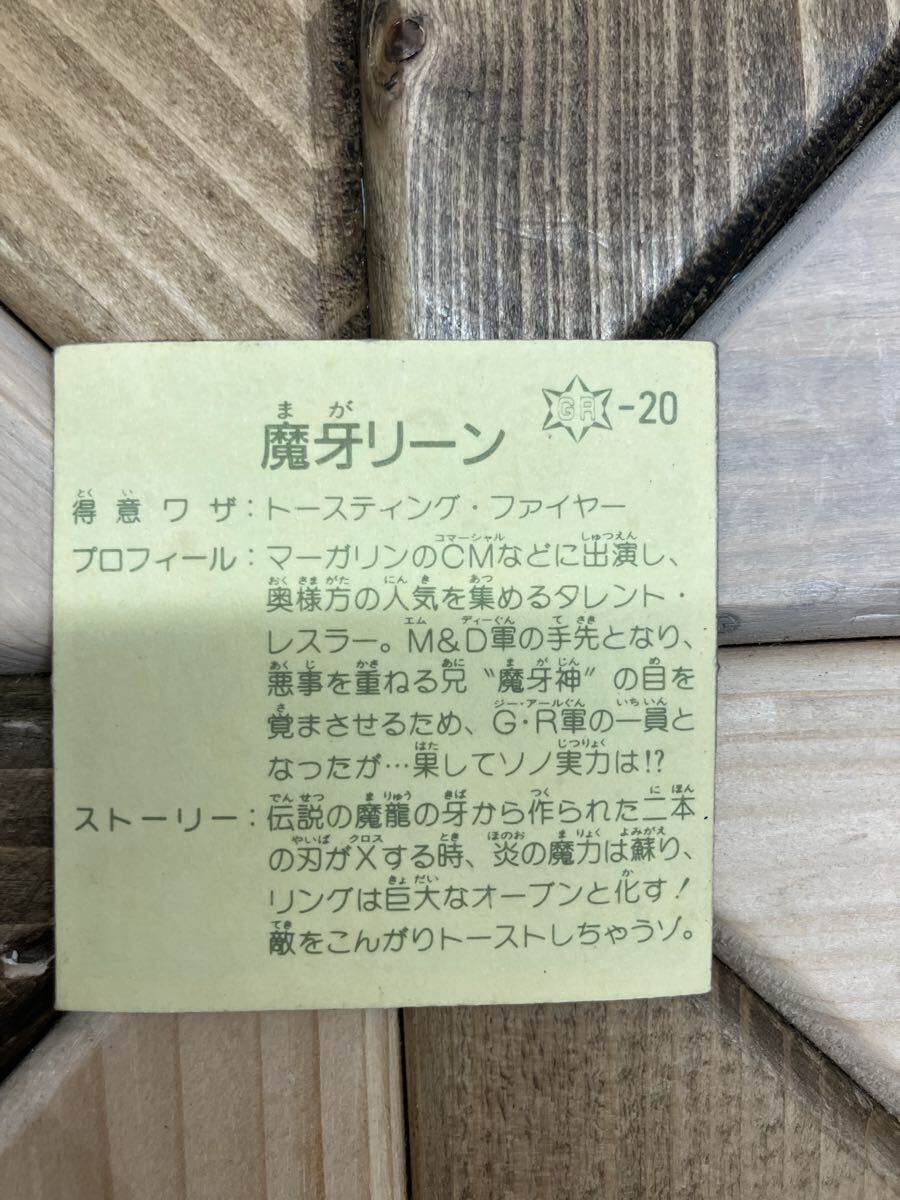 魔牙リーン GR-20
得意ワザ：トースティング・ファイヤー
プロフィール：マーガリンのCMなどに出演し、
奥様方の人気を集めるタレント・
レスラー。M&D軍の手先となり、
悪事を重ねる兄〝魔牙神〟の目を
覚まさせるため、G・R軍の一員と
なったが…果してソノ実力は!?
ストーリー：伝説の魔龍の牙から作られた二本
の刃がXする時、炎の魔力は蘇り、
リングは巨大なオーブンと化す！
敵をこんがりトーストしちゃうゾ。